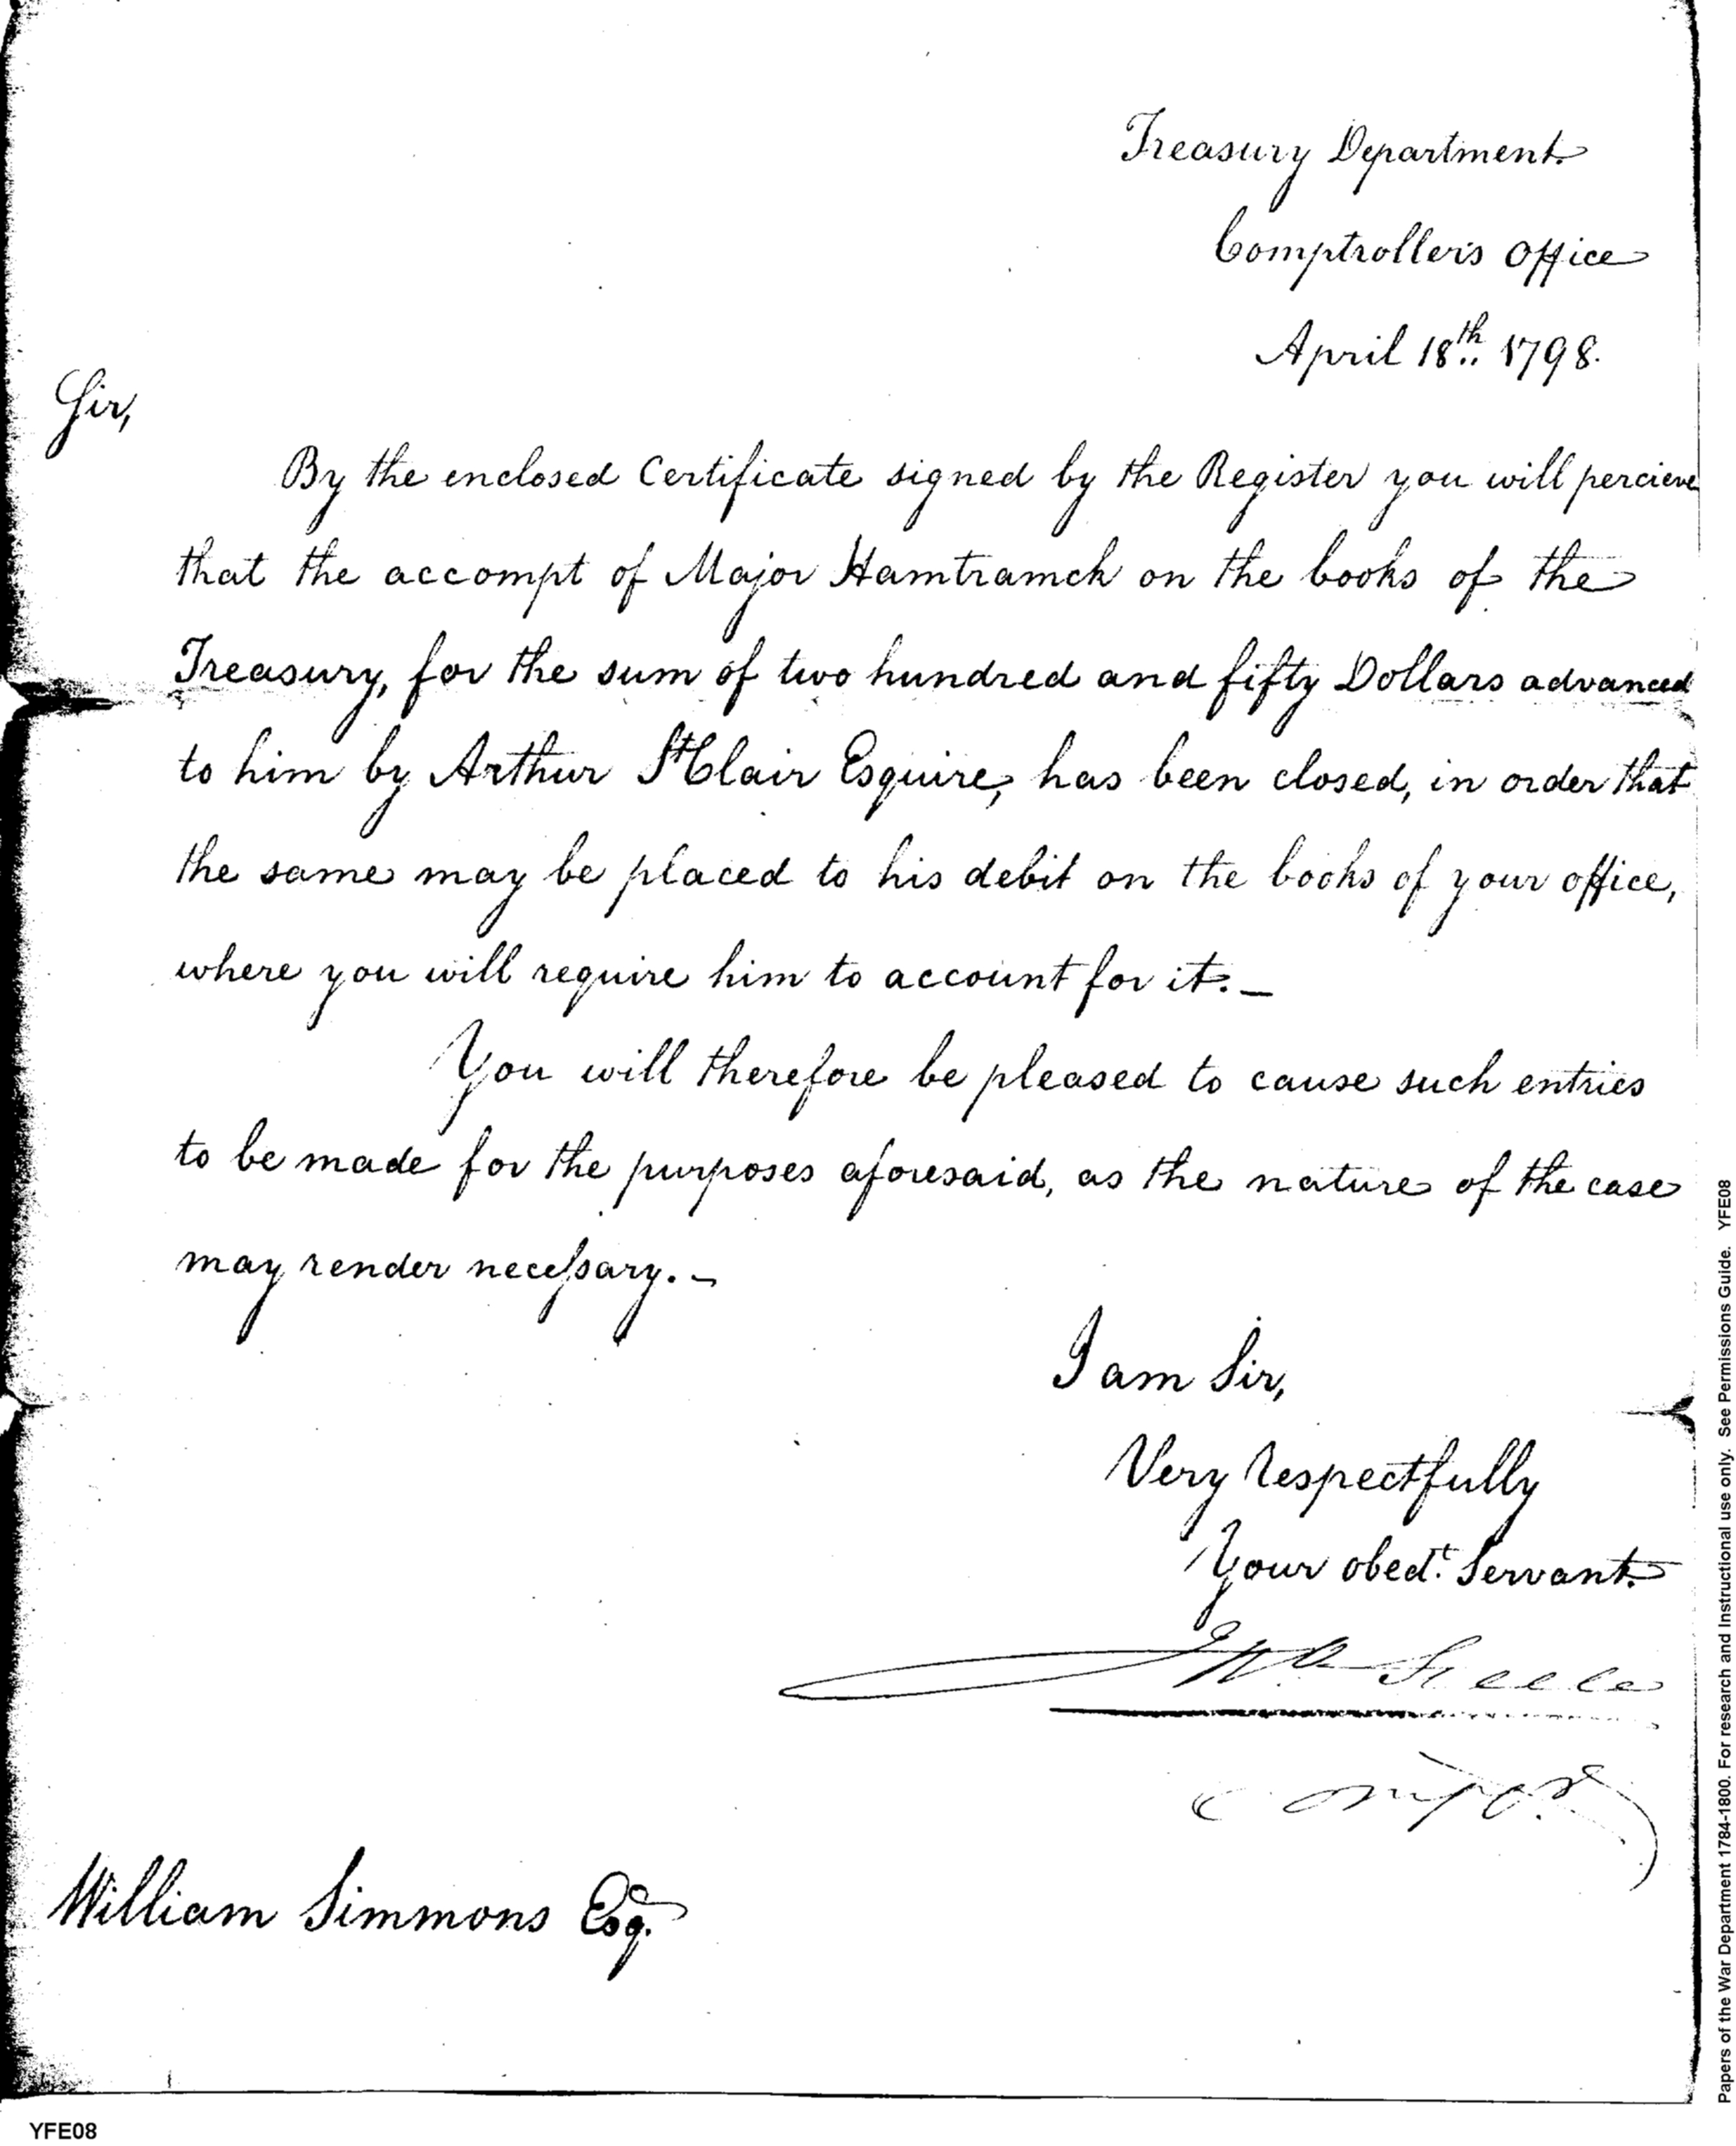 Treasury Department.
Comptroller's Office
April 18th. 1798.
Sir,
By the enclosed Certificate signed by the Register you will percieve
that the accompt of Major Hamtramck on the books of the
Treasury, for the sum of two hundred and fifty Dollars advanced
to him by Arthur St Clair Esquire, has been closed, in order that
the same may be placed to his debit on the books of your office,
where you will require him to account for it. _
You will therefore be pleased to cause such entries
to be made for the purposes aforesaid, as the nature of the case
may render necessary. _
I am Sir,
Very respectfully
Your obedt. Servant.
Jno. Steele
Compr.
William Simmons Esq.
YFE08
Papers of the War Department 1784-1800. For research and instructional use only. See Permissions Guide. YFE08